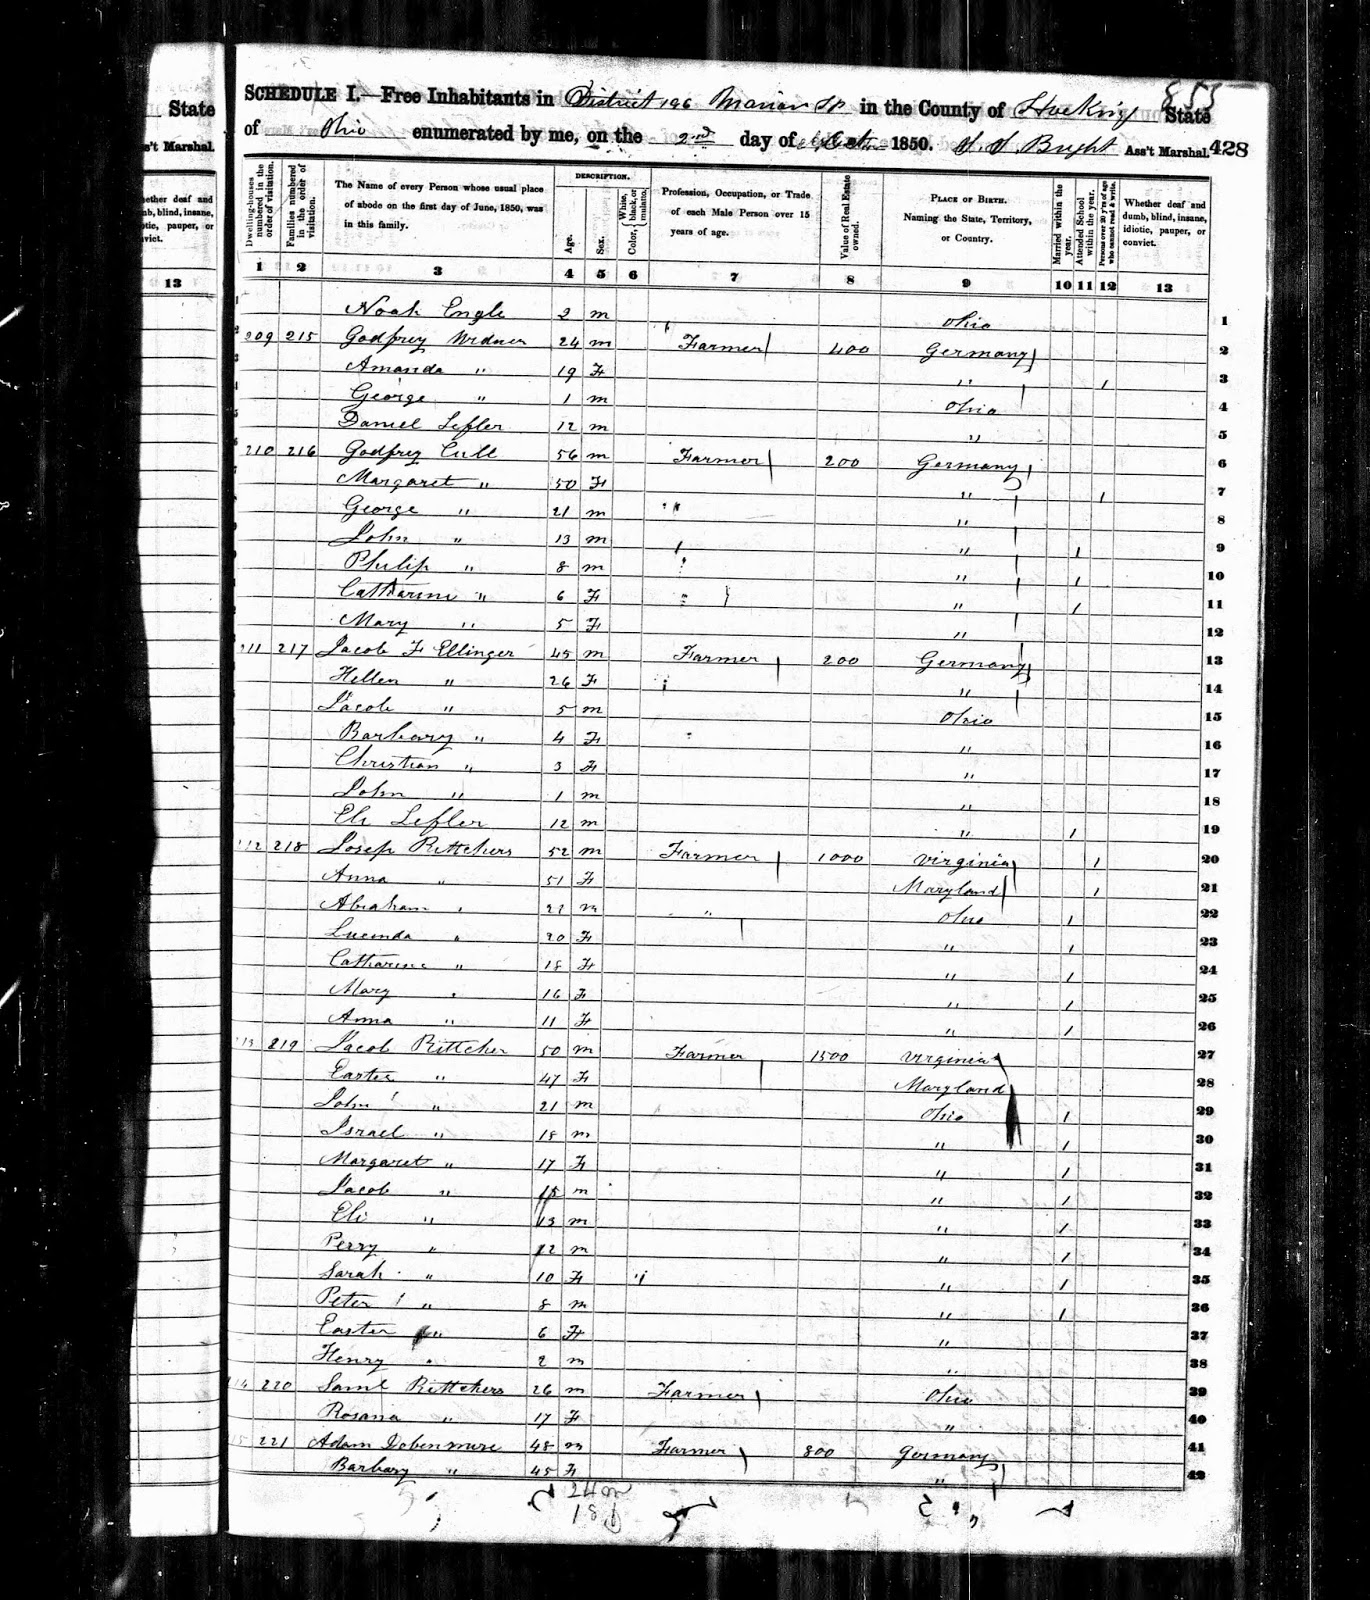 853
State
SCHEDULE I.—Free Inhabitants in District 196 Marion Tp in the County of Hocking State
of Ohio enumerated by me, on the 2nd day of 1850. S. S. Bright Ass't Marshal. 428
's't Marshal.
Dwelling-houses numbered in the order of visitation.
Families numbered in the order of visitation.
The Name of every Person whose usual place of abode on the first day of June, 1850, was in this family.
DESCRIPTION.
Age.
Sex.
Color, White, black, or mulatto.
Profession, Occupation, or Trade of each Male Person over 15 years of age.
Value of Real Estate owned.
PLACE OF BIRTH. Naming the State, Territory, or Country.
Married within the year.
Attended School within the year.
Persons over 20 y'rs of age who cannot read & write.
Whether deaf and dumb, blind, insane, idiotic, pauper, or convict.
hether deaf and
mb, blind, insane,
otic, pauper, or
vict.
13
1 2 3 4 5 6 7 8 9 10 11 12 13
Noah Engle 2 m Ohio 1
209 215 Godfrey Widner 24 m Farmer 400 Germany 2
Amanda " 19 F " 1 3
George " 1 m Ohio 4
Daniel Lefler 12 m " 5
210 216 Godfrey Cull 56 m Farmer 200 Germany 6
Margaret " 50 F " 1 7
George " 21 m " " 8
John " 13 m " 1 9
Philip " 8 m " 1 10
Catharine " 6 F " 1 11
Mary " 5 F " 12
11 217 Jacob F Ellinger 45 m Farmer 200 Germany 13
Hellen " 26 F " 14
Jacob " 5 m Ohio 15
Barbary " 4 F " 16
Christian " 3 F " 17
John " 1 m " 18
Eli Lefler 12 m " 1 19
12 218 Josep Rittchers 52 m Farmer 1000 Virginia 1 20
Anna " 51 F Maryland 1 21
Abraham " 22 m " Ohio 1 22
Lucinda " 20 F " 1 23
Catharine " 18 F " 1 24
Mary " 16 F " 1 25
Anna " 11 F " 1 26
13 219 Jacob Rittcher 50 m Farmer 1500 Virginia 27
Easter " 47 F Maryland 28
John " 21 m Ohio 1 29
Israel " 18 m " 1 30
Margaret " 17 F " 1 31
Jacob " 15 m " 1 32
Eli " 13 m " 1 33
Perry " 12 m " 1 34
Sarah " 10 F " 1 35
Peter " 8 m " 1 36
Easter " 6 F " 37
Henry " 2 m " 38
14 220 Saml Rittchers 26 m Farmer Ohio 39
Rosana " 17 F " 40
15 221 Adam Dobenmire 48 m Farmer 800 Germany 41
Barbary " 45 F " 42
24 m